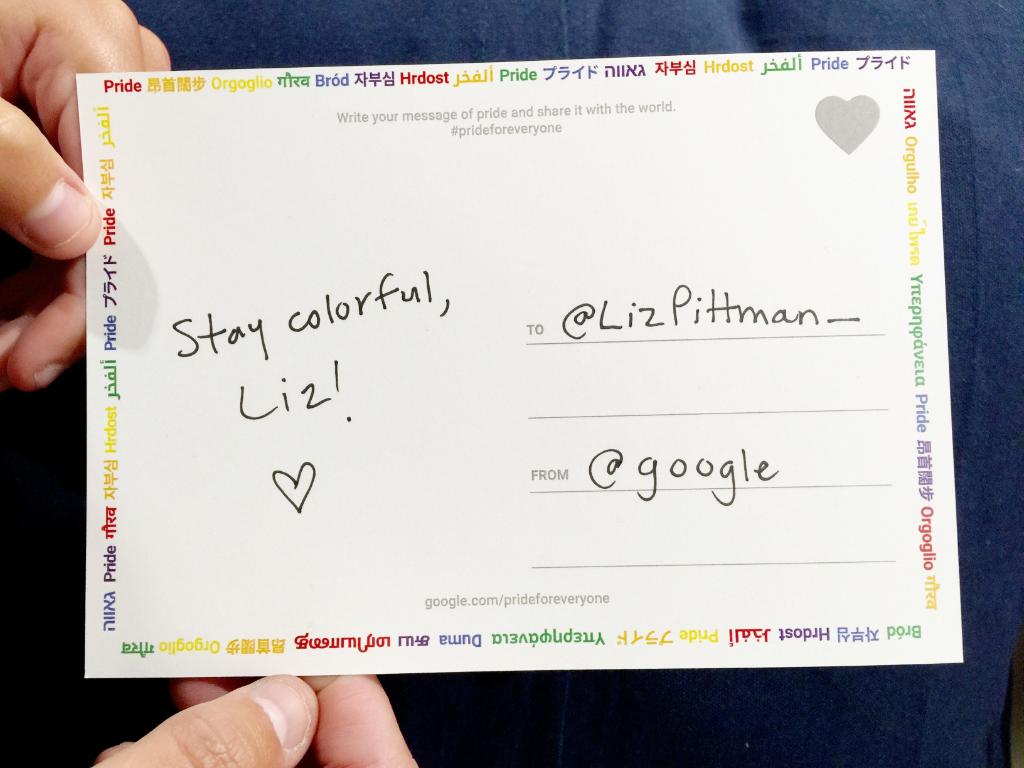 Pride 昂首闊步 Orgoglio गौरव Bród 자부심 Hrdost ألفخر Pride プライド גאווה 자부심 Hrdost ألفخر Pride プライド
Write your message of pride and share it with the world.
#prideforeveryone
Stay colorful,
Liz!
TO @LizPittman_
FROM @google
google.com/prideforeveryone
גאווה Orgulho เกย์ไพรด Υπερηφάνεια Pride 昂首闊步 Orgoglio गौरव
Bród 자부심 Hrdost ألفخر Pride プライド Υπερηφάνεια Duma 昂首闊步 Orgoglio गौरव
גאווה Pride गौरव 자부심 Hrdost ألفخر Pride プライド Pride 자부심 ألفخر